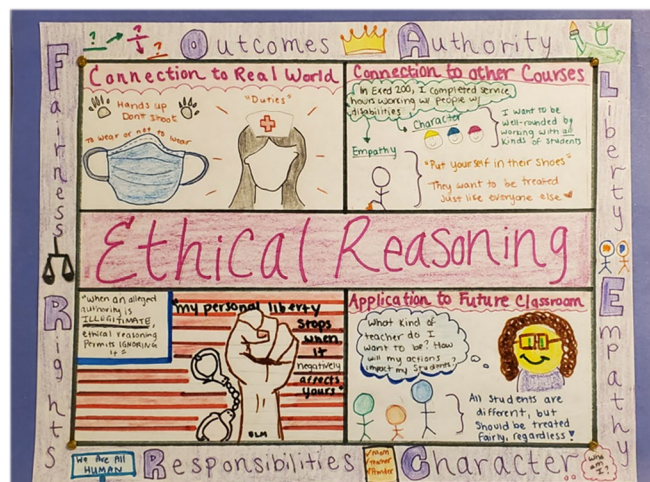 Outcomes Authority
Fairness
Rights
Liberty
Empathy
Connection to Real World
Hands up
Don't shoot
To wear or not to wear
"Duties"
Connection to other Courses
In Exed 200, I completed service
hours working w/ people w/
disabilities
Character
Empathy
I want to be
well-rounded by
working with all
kinds of students
"Put yourself in their shoes"
They want to be treated
Just like everyone else
Ethical Reasoning
"When an alleged
authority is
ILLEGITIMATE,
ethical reasoning
permits IGNORING
it"
"my personal liberty
stops
when
it
negatively
affects
yours"
BLM
Application to Future Classroom
What kind of
teacher do I
want to be? How
will my actions
impact my students?
All students are
different, but
should be treated
fairly, regardless!
We Are All
HUMAN
Responsibilities
Character
Who
am
I?